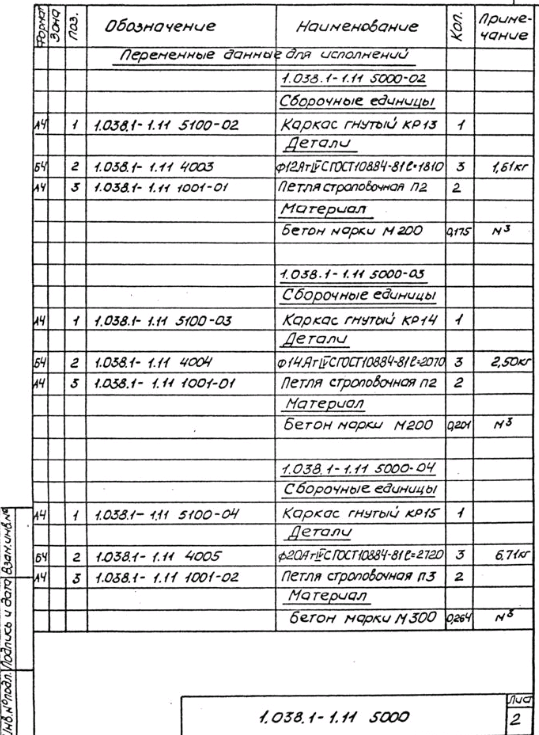 Формат Зона Поз. Обозначение Наименование Кол. Приме-
чание
Переменные данные для исполнений
1.038.1-1.11 5000-02
Сборочные единицы
А4 1 1.038.1-1.11 5100-02 Каркас гнутый КР13 1
Детали
БЧ 2 1.038.1-1.11 4003 ф12АтIVС ГОСТ10884-81 ℓ=1810 3 1,61кг
А4 3 1.038.1-1.11 1001-01 Петля строповочная П2 2
Материал
Бетон марки М200 0,175 м3
1.038.1-1.11 5000-03
Сборочные единицы
А4 1 1.038.1-1.11 5100-03 Каркас гнутый КР14 1
Детали
БЧ 2 1.038.1-1.11 4004 ф14АтIVС ГОСТ10884-81 ℓ=2070 3 2,50кг
А4 3 1.038.1-1.11 1001-01 Петля строповочная П2 2
Материал
Бетон марки М200 0,201 м3
1.038.1-1.11 5000-04
Сборочные единицы
А4 1 1.038.1-1.11 5100-04 Каркас гнутый КР15 1
Детали
БЧ 2 1.038.1-1.11 4005 ф20АтIVС ГОСТ10884-81 ℓ=2720 3 6.71кг
А4 3 1.038.1-1.11 1001-02 Петля строповочная П3 2
Материал
Бетон марки М300 0,264 м3
Инв.№подл. Подпись и дата Взам.инв.№
1.038.1-1.11 5000
Лист
2